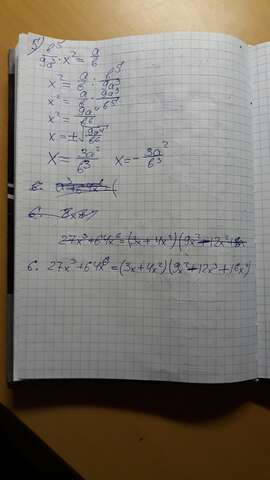 5) b⁵/9a³ · x² = a/b
x² = a/b : b⁵/9a³
x² = a/b · 9a³/b⁵
x² = 9a⁴/b⁶
x = ±√9a⁴/b⁶
x = 3a²/b³ x = - 3a²/b³
6.
6. 8x
27x³+64x⁶=(3x+4x²)(9x²-12x³+
6. 27x³+64x⁶=(3x+4x²)(9x²-12x³+16x⁴)